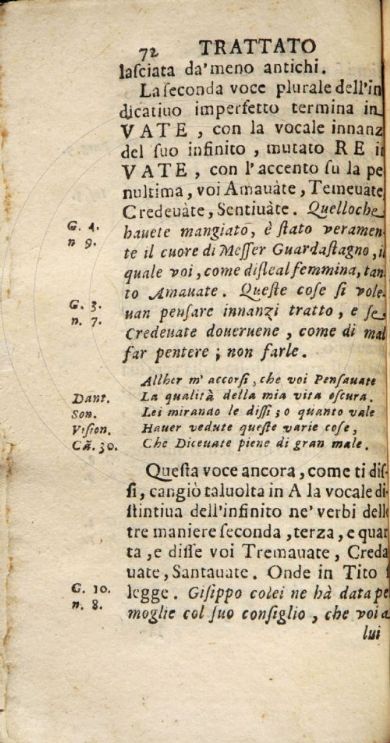 72 TRATTATO
laſciata da'meno antichi.
La ſeconda voce plurale dell'in
dicatiuo imperfetto termina in
VATE, con la vocale innanz
del ſuo infinito, mutato RE i
VATE, con l'accento ſu la pe
nultima, voi Amauàte, Temeuate
Credeuàte, Sentiuàte. Quelloche
G. 4. hauete mangiato, è ſtato veramen-
n 9. te il cuore di Meſſer Guardaſtagno, il
quale voi, come disleal femmina, tan
to Amauate. Queſte coſe ſi vole-
G. 3. uan penſare innanzi tratto, e ſe
n. 7. Credeuate doueruene, come di mal
far pentere; non farle.
Allhor m'accorſi, che voi Penſauate
Dant. La qualità della mia vita oſcura.
Son. Lei mirando le diſſi; o quanto vale
Viſion. Hauer vedute queſte varie coſe,
Cã. 30. Che Diceuate piene di gran male.
Queſta voce ancora, come ti diſ-
ſi, cangiò taluolta in A la vocale di
ſtintiua dell'infinito ne' verbi dell
tre maniere ſeconda, terza, e quar
ta, e diſſe voi Tremauate, Creda
uate, Santauate. Onde in Tito ſ
G. 10. legge. Giſippo colei ne hà data pe
n. 8. moglie col ſuo conſiglio, che voi a
lui